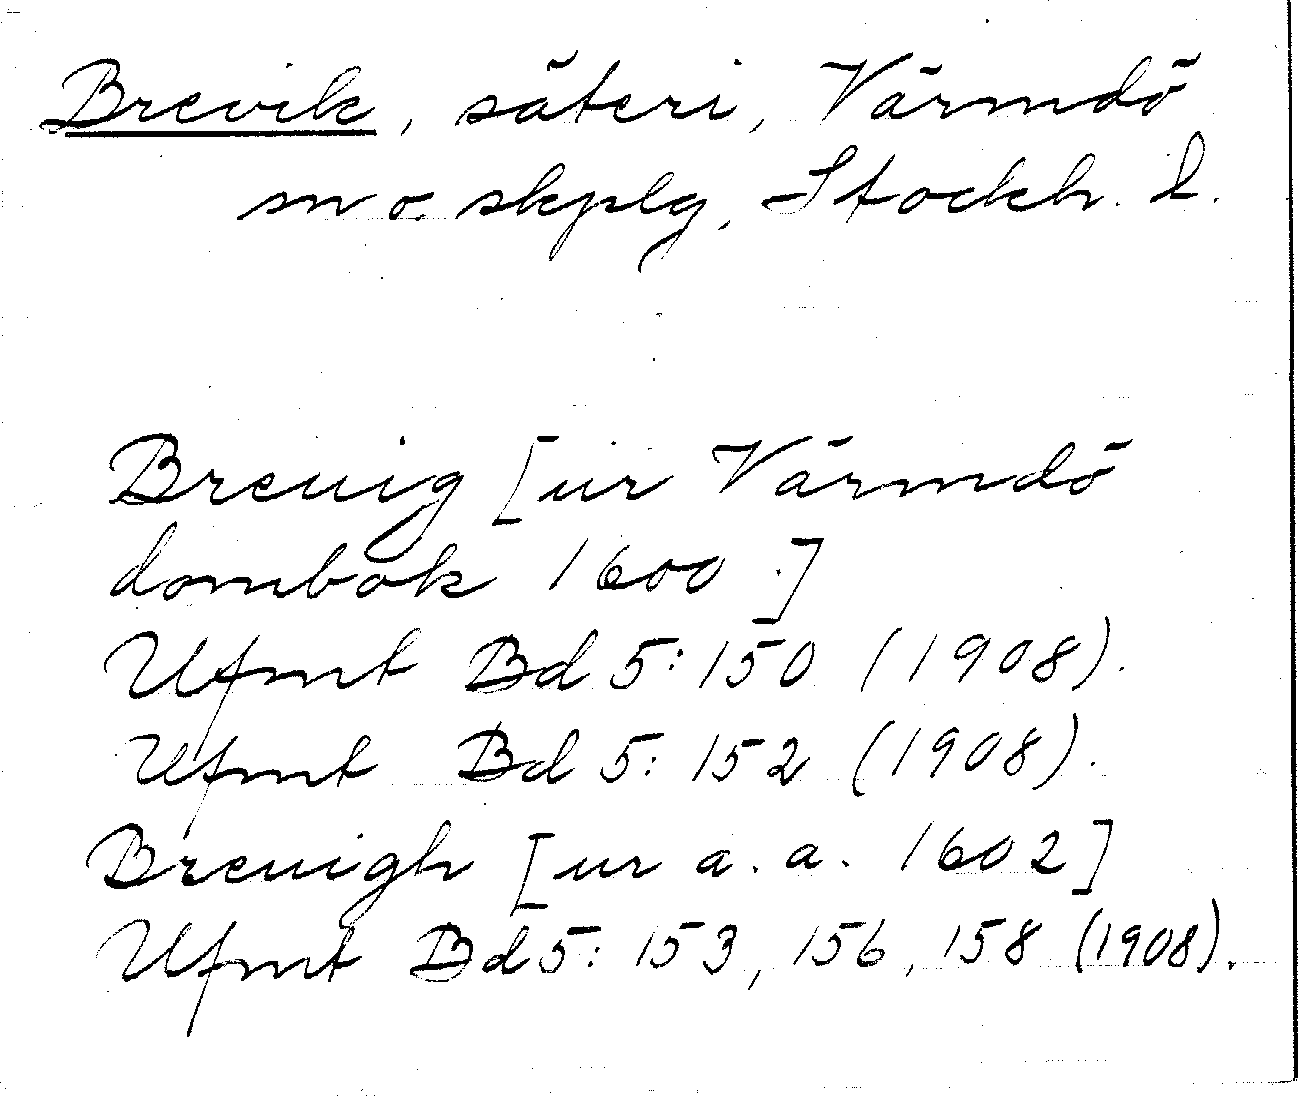 Brevik, säteri, Värmdö
sn o. skplg, Stockh. l.
Breuig [ur Värmdö
dombok 1600.]
Ufmt Bd 5: 150 (1908).
Ufmt Bd 5: 152 (1908).
Breuigh [ur a. a. 1602]
Ufmt Bd 5: 153, 156, 158 (1908).